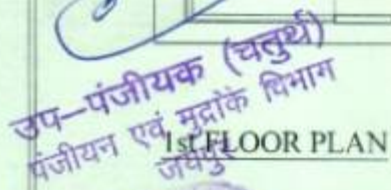 उप-पंजीयक (चतुर्थ)
पंजीयन एवं मुद्रांक विभाग
जयपुर
1st FLOOR PLAN